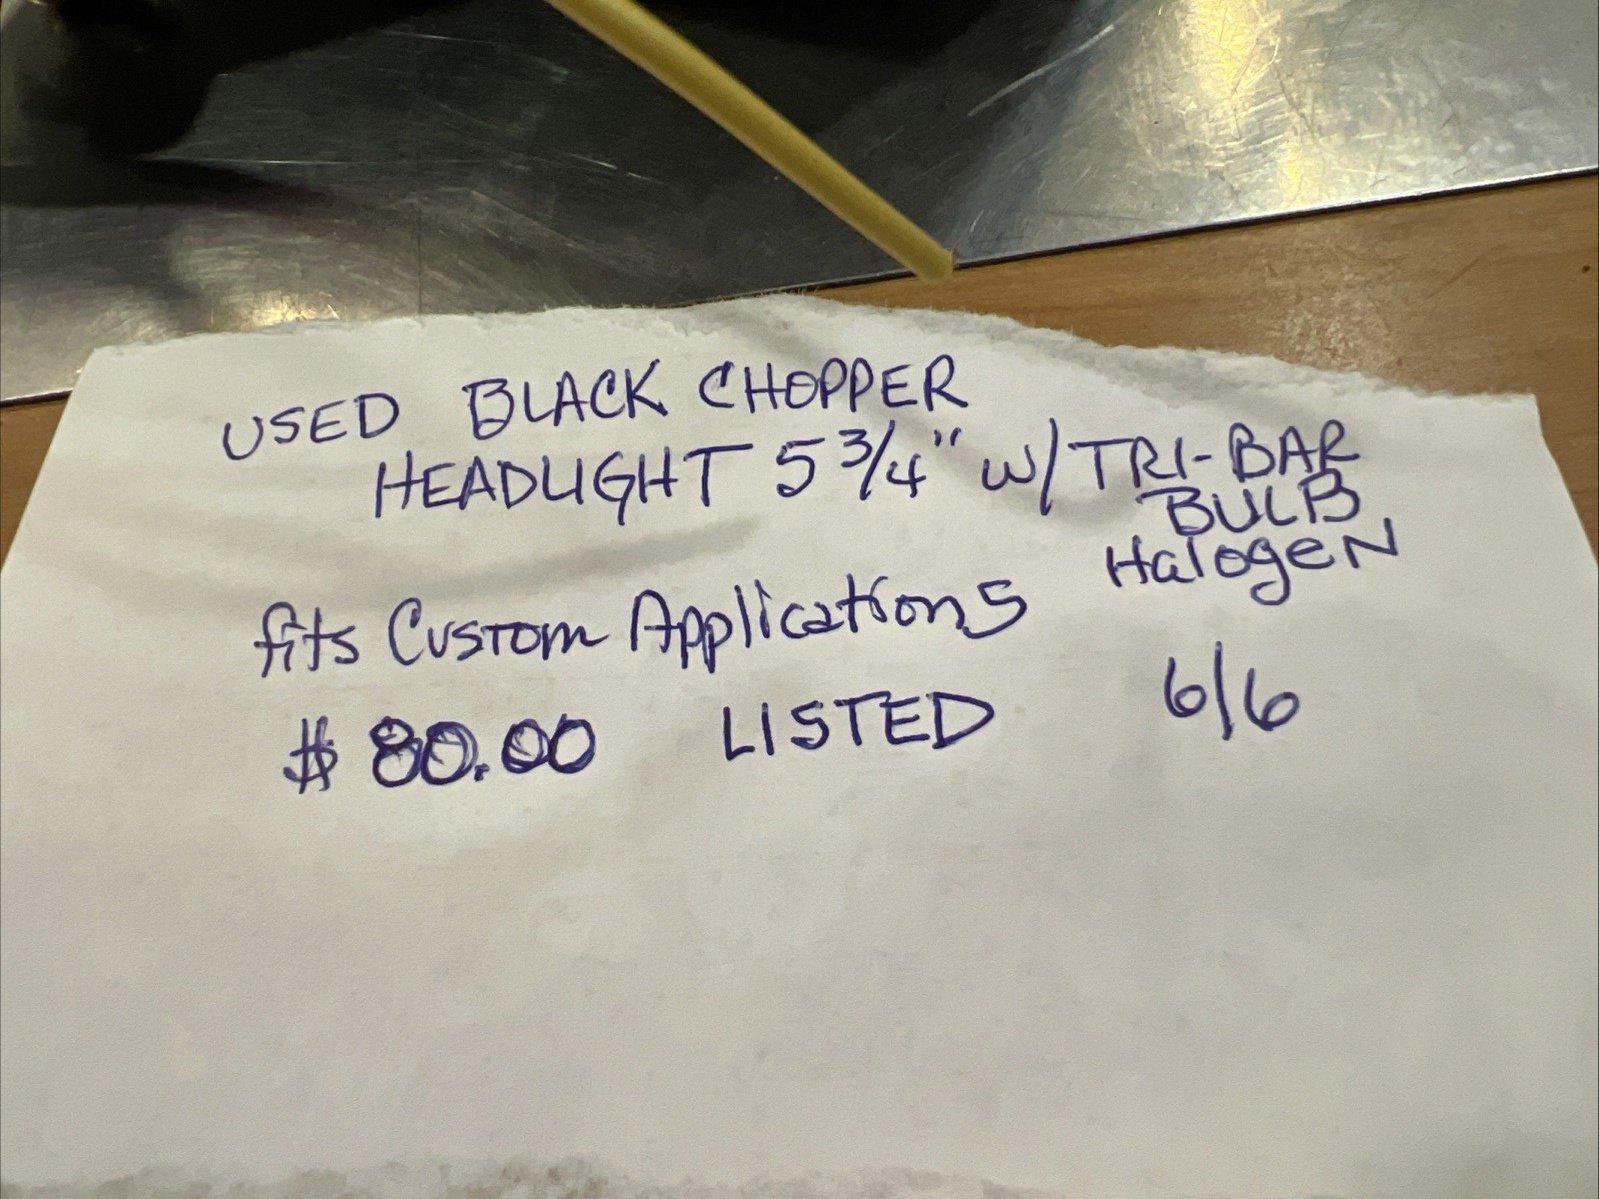 USED BLACK CHOPPER
HEADLIGHT 5 3/4" W/ TRI-BAR
BULB
HalogeN
fits Custom Applications
$80.00 LISTED 6/6